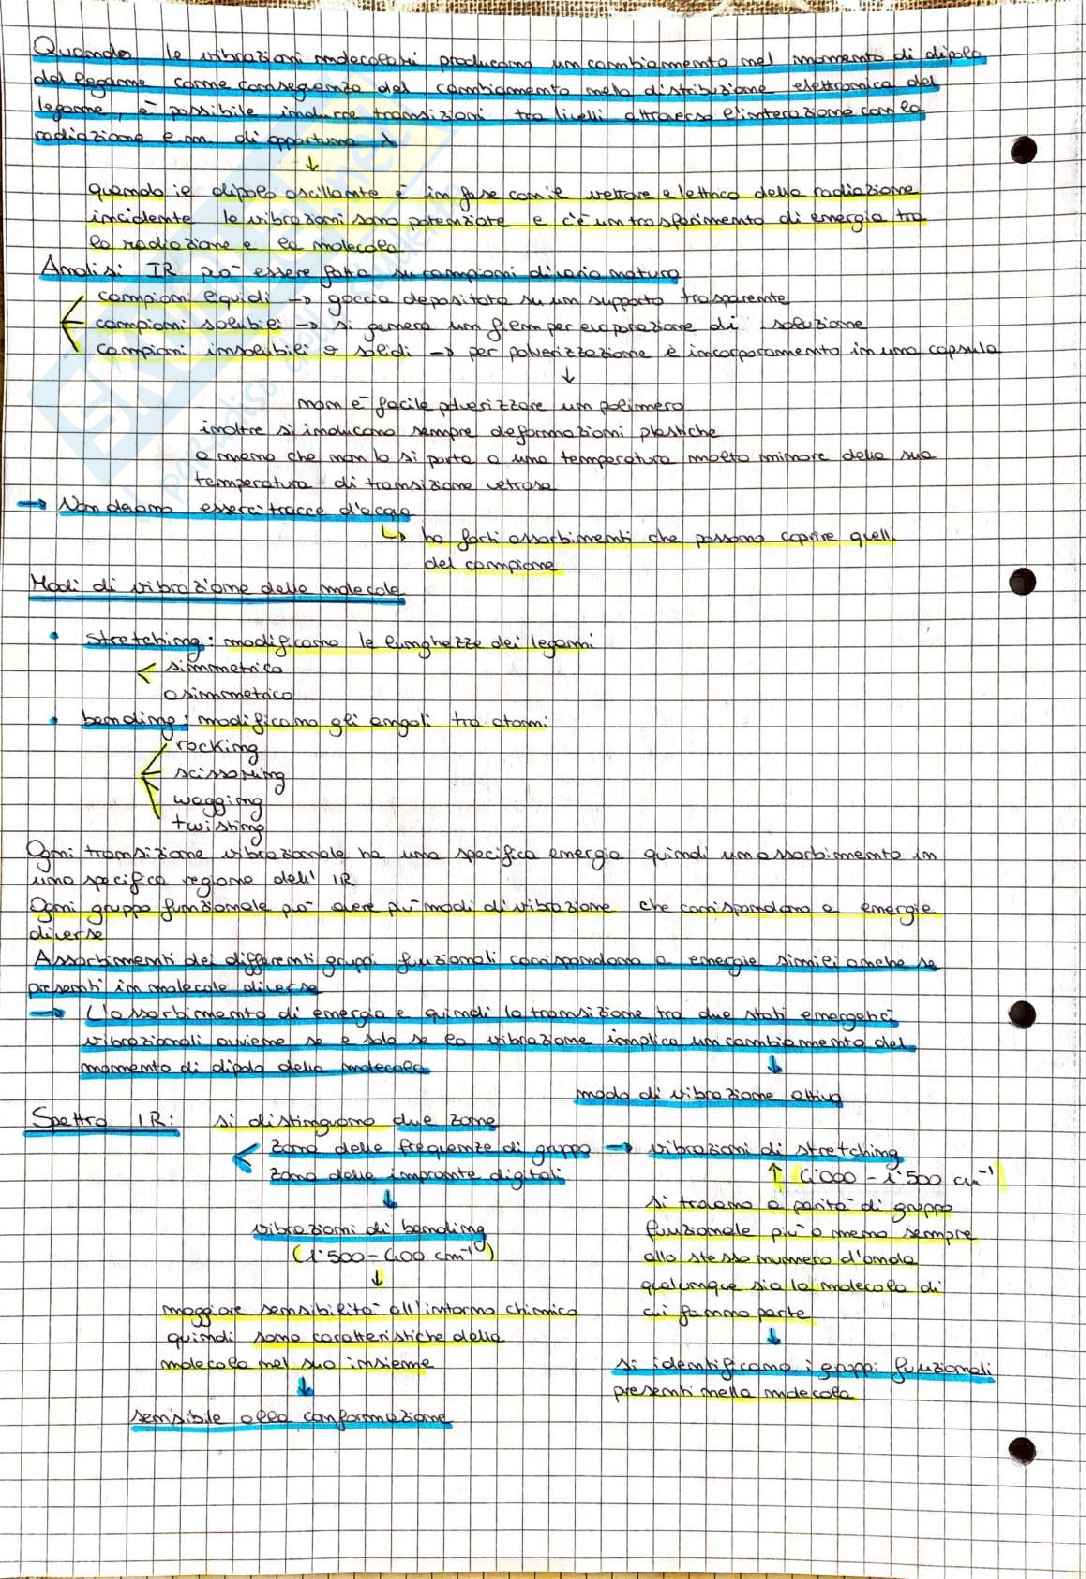 Quando le vibrazioni molecolari producono un cambiamento nel momento di dipolo
del legame come conseguenza del cambiamento nella distribuzione elettronica del
legame, è possibile indurre transizioni tra livelli attraverso l'interazione con la
radiazione e.m. di opportuna λ
↓
quando il dipolo oscillante è in fase con il vettore elettrico della radiazione
incidente le vibrazioni sono potenziate e c'è un trasferimento di energia tra
la radiazione e la molecola
Analisi IR può essere fatta su campioni di varia natura
campioni liquidi → goccia depositata su un supporto trasparente
campioni solubili → si genera un film per evaporazione di soluzione
campioni insolubili o solidi → per polverizzazione e incorporamento in una capsula
↓
non è facile polverizzare un polimero
inoltre si inducono sempre deformazioni plastiche
a meno che non lo si porta a una temperatura molto minore della sua
temperatura di transizione vetrosa
→ Non devono esserci tracce d'acqua
↳ ha forti assorbimenti che possono coprire quelli
del campione
Modi di vibrazione delle molecole
• stretching: modificano le lunghezze dei legami
simmetrico
asimmetrico
• bending: modificano gli angoli tra atomi
rocking
scissoring
wagging
twisting
Ogni transizione vibrazionale ha una specifica energia quindi un assorbimento in
una specifica regione dell' IR
Ogni gruppo funzionale può avere più modi di vibrazione che corrispondono a energie
diverse
Assorbimenti dei differenti gruppi funzionali corrispondono a energie simili anche se
presenti in molecole diverse
→ L'assorbimento di energia e quindi la transizione tra due stati energetici
vibrazionali avviene se e solo se la vibrazione implica un cambiamento del
momento di dipolo della molecola ↓
modo di vibrazione attivo
Spettro IR: si distinguono due zone
zona delle frequenze di gruppo → vibrazioni di stretching
zona delle impronte digitali ↑ 4'000 - 1'500 cm⁻¹
↓
vibrazioni di bending
(1'500-400 cm⁻¹)
↓
maggiore sensibilità all'intorno chimico
quindi sono caratteristiche della
molecola nel suo insieme
↓
sensibile alla conformazione
si trovano a parità di gruppo
funzionale più o meno sempre
allo stesso numero d'onda
qualunque sia la molecola di
cui fanno parte
↓
si identificano i gruppi funzionali
presenti nella molecola